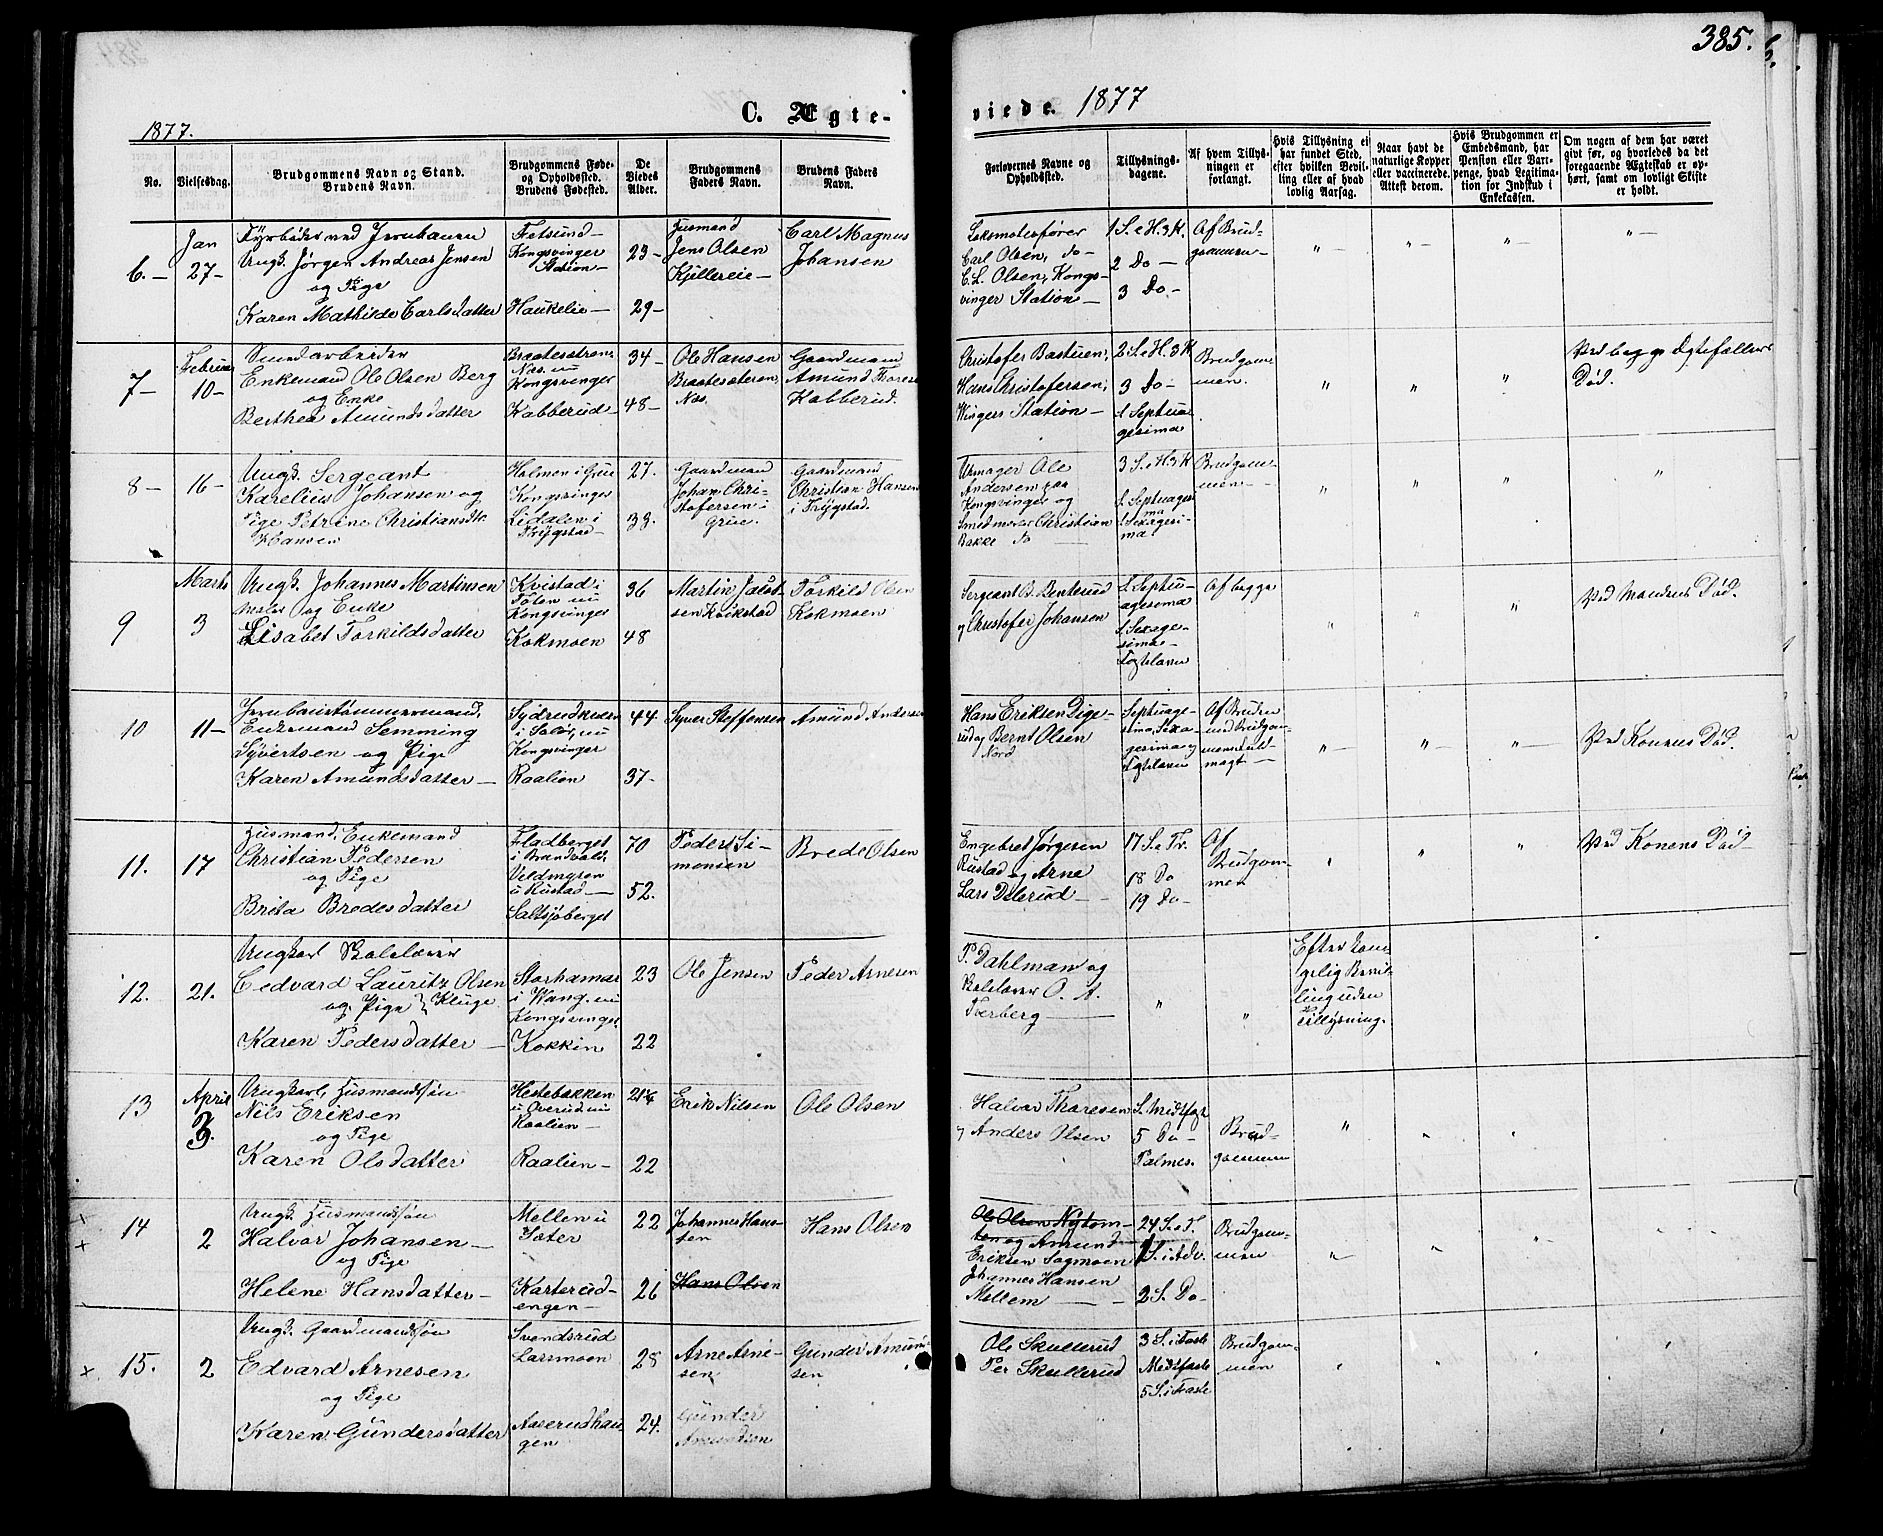 385.
1877.
C. Ægte-
viede. 1877
No.
Vielsesdag.
Brudgommens Navn og Stand.
Brudens Navn.
Brudgommens Føde-
og Opholdssted.
Brudens Fødested.
De
Viedes
Alder.
Brudgommens
Faders Navn.
Brudens Faders
Navn.
Forlovernes Navne og
Opholdssted.
Tillysnings-
dagene.
Af hvem Tillys-
ningen er
forlangt.
Hvis Tillysning ei
har fundet Sted,
efter hvilken Bevil-
ling eller af hvad
lovlig Aarsag.
Naar havt de
naturlige Kopper
eller vaccinerede.
Attest derom.
Hvis Brudgommen er
Embedsmand, har
Pension eller Vart-
penge, hvad Legitima-
tion for Indskud i
Enkekassen.
Om nogen af dem har været
givt før, og hvorledes da det
foregaaende Ægteskab er op-
hørt, samt om lovligt Skifte
er holdt.
6.-
Jan
27-
Fyrbøder ved Jernbanen
Ungk. Jørgen Andreas Jensen
og Pige
Karen Mathilde Carlsdatter
Fetsund-
Kongsvinger
Station-
Haukelie-
23-
29-
Husmand
Jens Olsen
Kjellereie-
Carl Magnus
Johansen
Lokomotivfører
Carl Olsen, do-
C. L. Olsen, Kongs-
vinger Station-
1 S. e H. 3 K.
2 Do-
3 Do-
Af Brud-
gommen-
7-
Februar
10-
Smedarbeider
Enkemand Ole Olsen Berg
og Enke
Berthea Amundsdatter
Næs. nu
Kongsvinger
Kabberud-
34-
48-
Ole Hansen
Braatesæteren,
Næs.
Gaardmand
Amund Tores
Kabberud.
Christofer Bastisen,
Hans Christofersen,
Wingers Station-
2 S. e H. 3 K
3 Do-
S. Septua-
gesima
Brudgom-
men.
Ved begge Ægtefællers
Død.
8-
16-
Ungk. Sergeant
Karelius Johansen og
Pige Petrine Christiansdtr.
Hansen
Holmen i Grue
Kongsvinger
Lidalen i
Trygstad-
27.
33.
Gaardmand
Johan Chri-
stofersen i
Grue.
Gaardmand
Christian Hansen
i Trygstad.
Urmager Ole
Andersen paa
Kongsvinger og
Smedmester Christian
Bakke do
3 S. e H. 3 K
S. Septuages-
ma
S. Sexagesi-
ma
Brudgom-
men-
9
Marts
3
Ungk. Johannes Martinsen
Maler og Enke
Lisabet Torkildsdatter
Kvistad i
Toten nu
Kongsvinger
Kokmoen
36
48
Martin Jacob-
sen Kvikstad
Torkild Olsen
Kokmoen
Sergeant B. Benterud
og Christofer Johansen
S. Septu-
agesima
S. Sexage-
sima-
Fastelavn
Af begge
Ved Mandens Død.
10
11-
Jernbanetømmermand,
Enkemand Semming
Syvertsen og Pige
Karen Amundsdatter-
i Solør, nu
Kongsvinger
Raalien
44.
37-
Syver Steffensen
Amund Andersen
Hans Eriksen Dige-
rud og Bernt Olsen
Nord
Septuage-
sima, Sexa-
gesima og
Fastelavn
Af Bruden
med Brudgom-
mens Fuld-
magt-
Ved Konens Død.
11.
17
Husmand, Enkemand
Christian Pedersen
og Pige
Brita Bredesdatter
Fladberget
i Brandvold,
Vildmyren
u Rustad-
Saltsjøberget
70
52.
Peder Si-
mensen
Brede Olsen
Engebret Jørgesen
Rustad og Arne
Lars Dølerud-
17 S. e Tr.
18 Do
19 Do-
Af
Brudgom-
men
Ved Konens Død-
12.
21.
Cedvard Lauritz Olsen
og Pige } Kluge
Karen Pedersdatter-
Storhamar
i Wang, nu
Kongsvinger
Kokkin
23
22
Ole Jensen
Peder Arnesen
P. Dahlman og
O. A.
Tverberg
Efter kon-
gelig Bevil-
ling uden
Tillysning.
13
April
3.
Ungkarl, Husmandssøn
Nils Eriksen
og Pige
Karen Olsdatter
Hestebakken
u Overud nu
Raalien-
Raalien-
24
22
Erik Nilsen
Ole Olsen
Halvor Thoresen
og Anders Olsen
S. Midtfast
5 Do-
Palmes.
Brud-
gommen
14
2
Ungk. Husmandssøn
Halvor Johansen-
og Pige
Helene Hansdatter-
Mellem u
Sæter
Karterud-
engen-
22
26
Johannes Han-
sen
Hans Olsen
Hans Olsen
Ole Olsen Nytom-
ten og Amund
Eriksen Sagmoen
Johannes Hansen
Mellem
24 S. e T.
1 S. i Adv.
2 S. Do-
Brudgom-
men
15.
2
Ungk. Gaardmandssøn
Edvard Arnesen
og Pige
Karen Gundersdatter
Svendsrud
Larsmoen
Aaserudhau-
gen
28
24.
Arne Arne-
sen
Gunder
Amundsen
Gunder Amund-
sen
Ole Skullerud
Per Skullerud
3 S. i Faste
Midtfaste
5 S. i Faste
Brudgom-
men